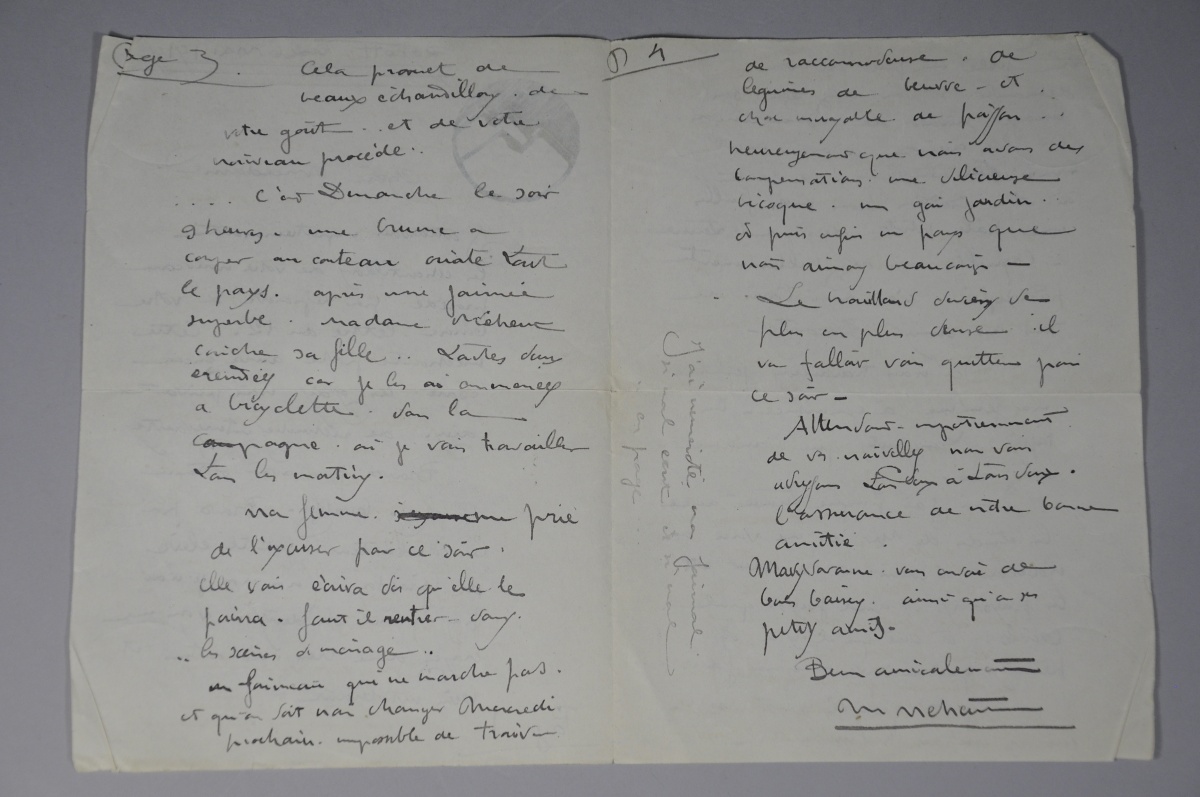 Page 3
Cela promet de
beaux échantillons. de
votre goût.. et de votre
nouveau procédé..
.... C'est Dimanche le soir
9 heures. une brume a
couper au couteau ouate tout
le pays. après une journée
superbe. Madame Méheut
couche sa fille.. toutes deux
éreintées car je les ai emmenées
a bicyclette. dans la
campagne. où je vais travailler
tous les matins.
Ma femme. prie
de l'excuser pour ce soir.
elle vous écrira dès qu'elle le
pourra. faut il rentrer dans.
.. les scènes de ménage..
un fourneau qui ne marche pas.
et qu'on doit nous changer Mercredi
prochain. impossible de trouver
P 4
de raccomodeuse. de
légumes de beurre. et
chose incroyable. de poisson..
heureusement que nous avons des
compensations. une délicieuse
bicoque. un gai jardin..
et puis enfin un pays que
nous aimons beaucoup —
Le brouillard devient de
plus en plus dense. il
va falloir vous quitter pour
ce soir —
Attendant impatiemment
de vos nouvelles nous vous
adressons tous deux à tous deux.
l'assurance de notre bonne
amitié.
Maryvonne. vous envoie de
bons baisers. ainsi qu'a ses
petits amis.
Bien amicalement
M Méheut
J'ai
si mal écrit
page..